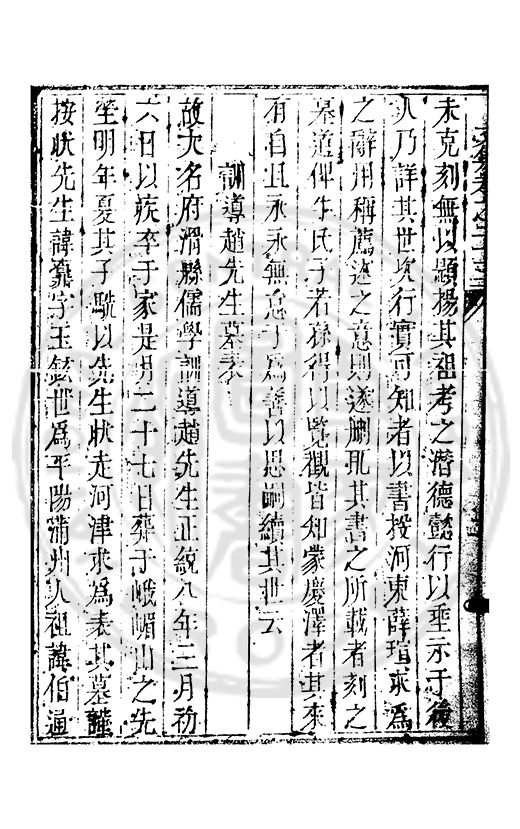 未克刻無以顯揚其祖考之潛德懿行以垂示于後
人乃詳其世次行實可知者以書投河東薛瑄求為
之辭用稱薦達之意則遂刪取其書之所載者刻之
墓道俾牛氏子若孫得以覽觀皆知蒙慶澤者其來
有自且永永無怠于為善以思嗣續其世云
訓導趙先生墓表
故大名府滑縣儒學訓導趙先生正統八年三月初
六日以疾卒于家是月二十七日葬于峨嵋山之先
塋明年夏其子駪以先生狀走河津求為表其墓謹
按狀先生諱 字玉鉉世為平陽蒲州人祖諱伯通